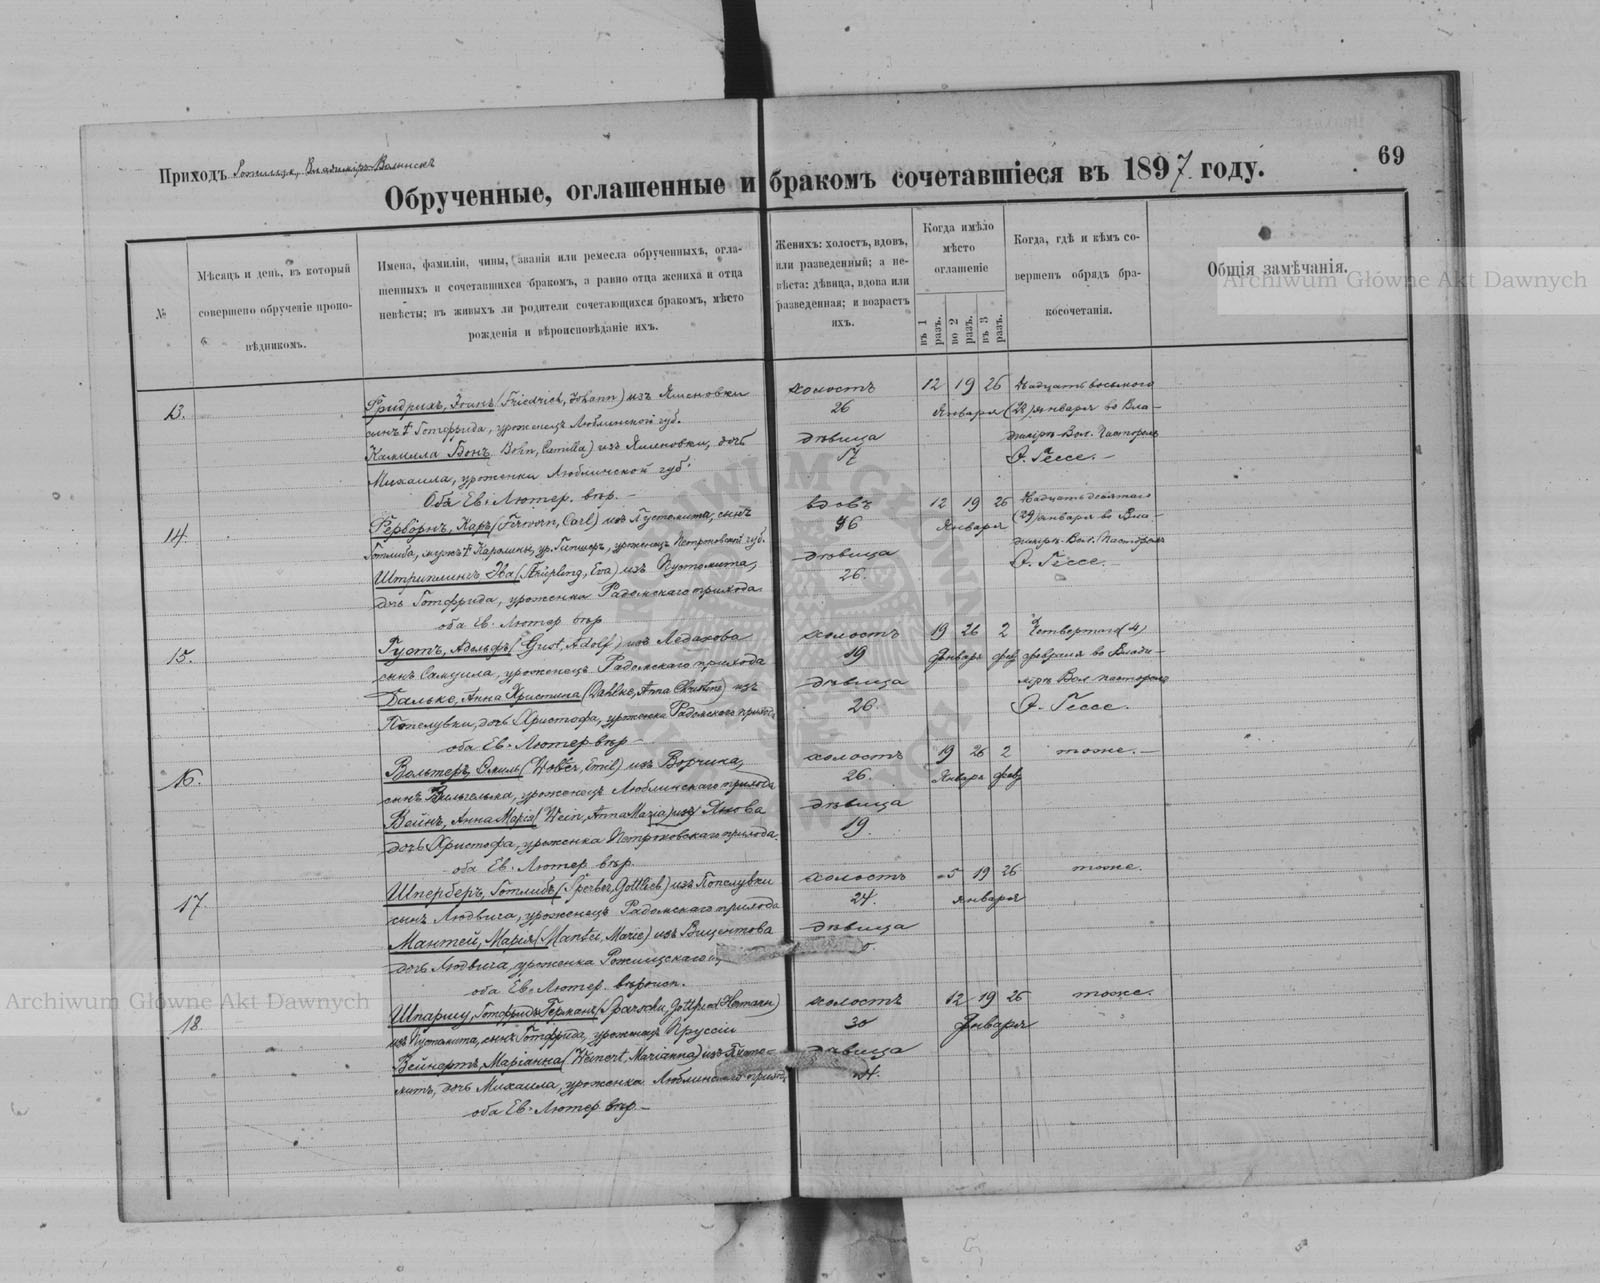 69
Приходъ Владимiръ-Волынскъ
Обрученные, оглашенные и бракомъ сочетавшіеся въ 1897 году.
№
Мѣсяцъ и день, въ который совершено обрученіе проповѣдникомъ.
Имена, фамиліи, чины, званія или ремесла обрученныхъ, оглашенныхъ и сочетавшихся бракомъ, а равно отца жениха и отца невѣсты; въ живыхъ ли родители сочетающихся бракомъ, мѣсто рожденія и вѣроисповѣданіе ихъ.
Женихъ: холостъ, вдовъ, или разведенный; а невѣста: дѣвица, вдова или разведенная; и возрастъ ихъ.
Когда имѣло мѣсто оглашеніе
въ 1 разъ.
во 2 разъ.
въ 3 разъ.
Когда, гдѣ и кѣмъ совершенъ обрядъ бракосочетанія.
Общія замѣчанія.
Archiwum Główne Akt Dawnych
13.
Фридрихъ, Іоанъ (Friedrich, Johann) изъ Яменовки
сынъ † Готфрида, уроженецъ Люблинской губ.
Камилла Бонъ (Bohn, Camilla) изъ Яменовки, дочь
Михаила, уроженки Люблинской губ.
Оба Ев. Лютер. вѣр.
холостъ
26
дѣвица
17
12 19 26
Января
Двадцать восьмого
(28) января во Вла-
димірѣ-Вол. Пасторомъ
О. Гессе.
14.
Ферворнъ, Карлъ (Ferworn, Carl) изъ Пустомита, сынъ
Готлиба, мужъ † Каролины, ур. уроженецъ Петроковской губ.
Штриплингъ Эва (Strüpling, Eva) изъ Пустомита,
дочь Готфрида, уроженка Радомскаго прихода
оба Ев. Лютер вѣр
вдовъ
дѣвица
26.
12 19 26
Января
Двадцать девятаго
(29) января во Вла-
димірѣ-Вол. Пасторомъ
О. Гессе.
15.
Густъ, Адольфъ (Gust, Adolf) изъ Ледахова
сынъ Самуила, уроженецъ Радомскаго прихода
Далькe, Анна Христина (Dahlke, Anna Christine) изъ
Попелувки, дочь Христофа, уроженка Радомскаго прихода
оба Ев. Лютер вѣр
холостъ
19
дѣвица
26.
19 26 2
Января фев.
Четвертаго (4)
февраля во Влади-
мірѣ Вол. пасторомъ
О. Гессе.
16.
Вольтеръ, Эмиль (Wolter, Emil) изъ Ворчина,
сынъ Вильгельма, уроженецъ Люблинскаго прихода
Вейнъ, Анна Марія (Wein, Anna Maria) изъ Янова
дочь Христофа, уроженка Петроковскаго прихода.
оба Ев. Лютер вѣр.
холостъ
26.
дѣвица
19.
19 26 2
Января фев.
тоже.
17.
Шперберъ, Готлибъ (Sperber, Gottlieb) изъ Попелувки
сынъ Людвига, уроженецъ Радомскаго прихода
Мантей, Марія (Mantei, Marie) изъ Вицентова
дочь Людвига, уроженка Рожищскаго
оба Ев. Лютер. вѣроисп.
холостъ
24.
дѣвица
5 19 26
января
тоже.
18
Шпаршу, Готфридъ Германъ (Sparschu, Gottfried Hermann)
изъ Пустомита, сынъ Готфрида, уроженецъ Пруссіи
Вейнертъ, Маріанна (Weinert, Marianna) изъ Пусто-
митъ, дочь Михаила, уроженка Люблинскаго прихода,
оба Ев. Лютер. вѣр
холостъ
30
дѣвица
12 19 26
Января
тоже.
Archiwum Główne Akt Dawnych
ARCHIWUM GŁÓWNE AKT DAWNYCH